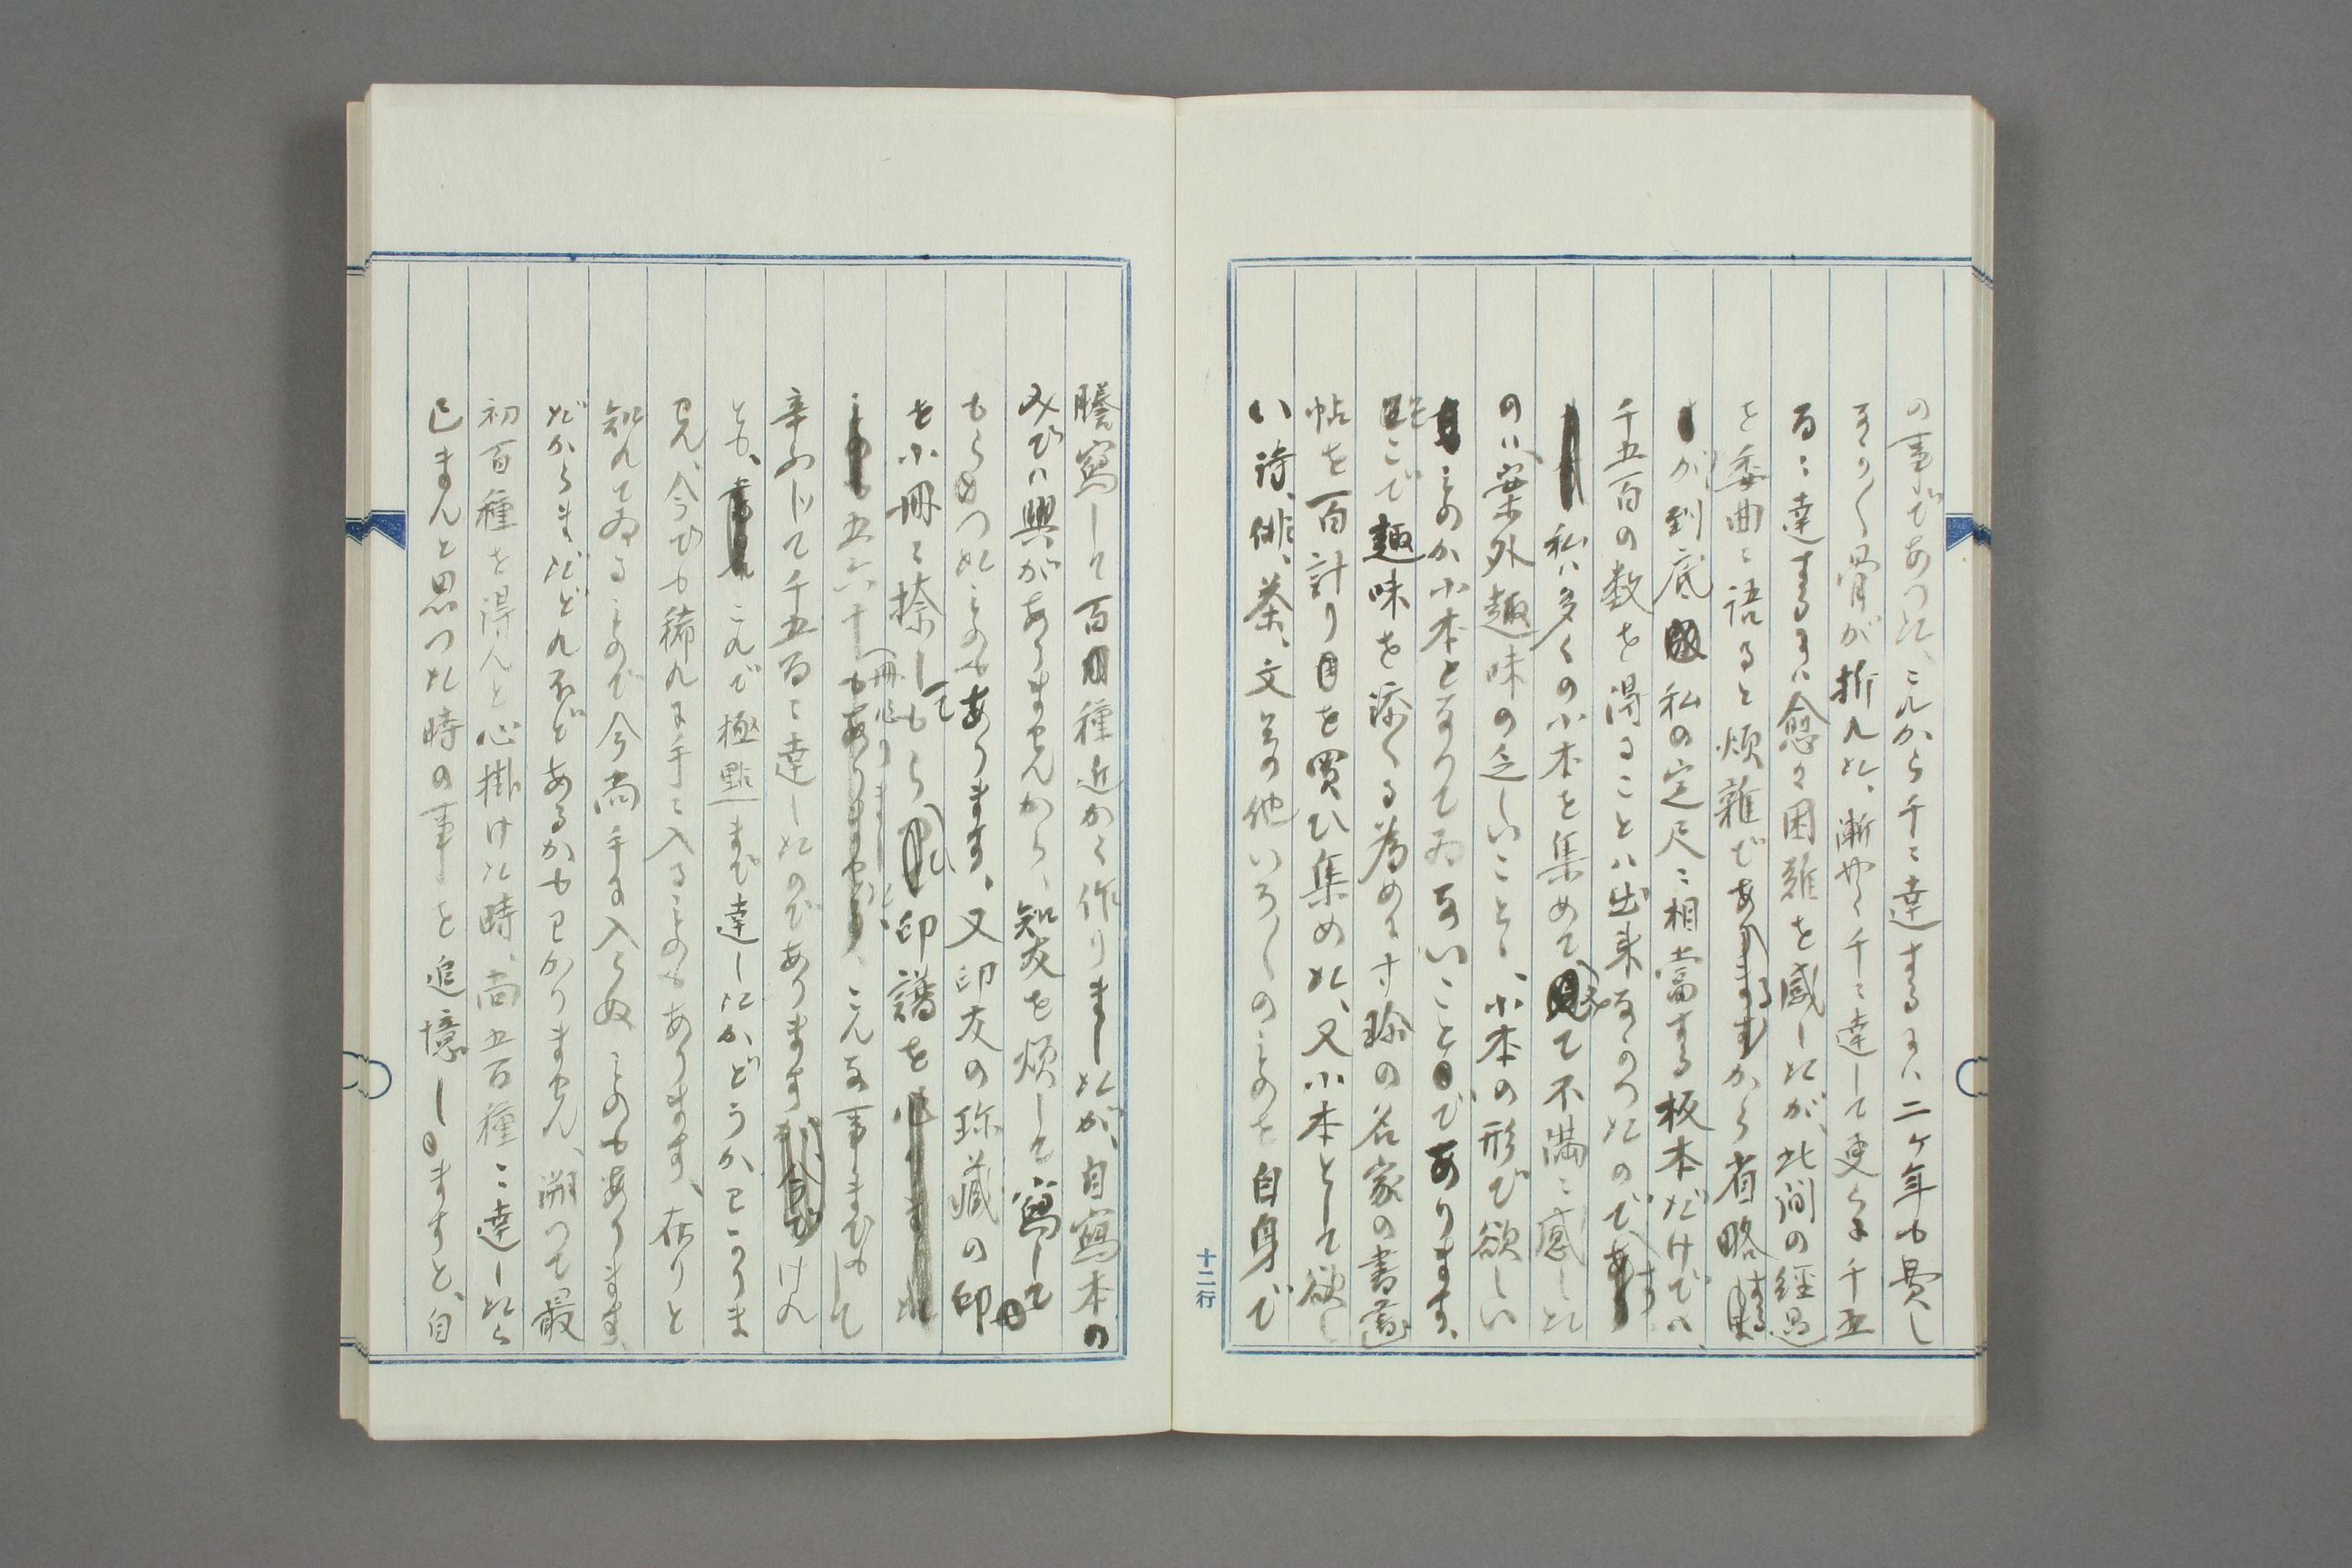 の事であつた、これから千に達するには二ヶ年も費し
骨が折れた、漸やく千に達して更らに千五
百に達するには愈々困難を感したが、此間の経過
を委曲に語ると煩雑であるから省略する
が到底私の定尺に相当する板本だけでは、
千五百の数を得ることは出来なかつたので、
私は多くの小本を集めて見て不満に感した
のは、案外趣味の乏しいことと、小本の形で欲しい
ものが小本となつてゐないことであります、
そこで趣味を添くる為めに寸珍の名家の書画
帖を百計り買ひ集めた、又小本として欲し
い詩、俳、茶、文その他いろ〱のものを自身で
十二行
謄写して百種近かく作りましたが、自写本の
みでは興がありませんから、知友を煩して写して
もらつたものもあります、又印友の珍蔵の印
を小冊に捺してもらひ印譜を
五六十冊作りました、こんな事までもして
辛ふじて千五百に達したのであります けれ
とも、これで極點まで達したかどうか、わかりま
せん、今でも稀れに手に入るものもあります、在りと
知れてゐるもので今尚手に入らぬものもあります、
だからまだどれほどあるかもわかりません、溯つて最
初百種を得んと心掛けた時、尚五百種に達したら
已まんと思つた時の事を追憶しますと、自